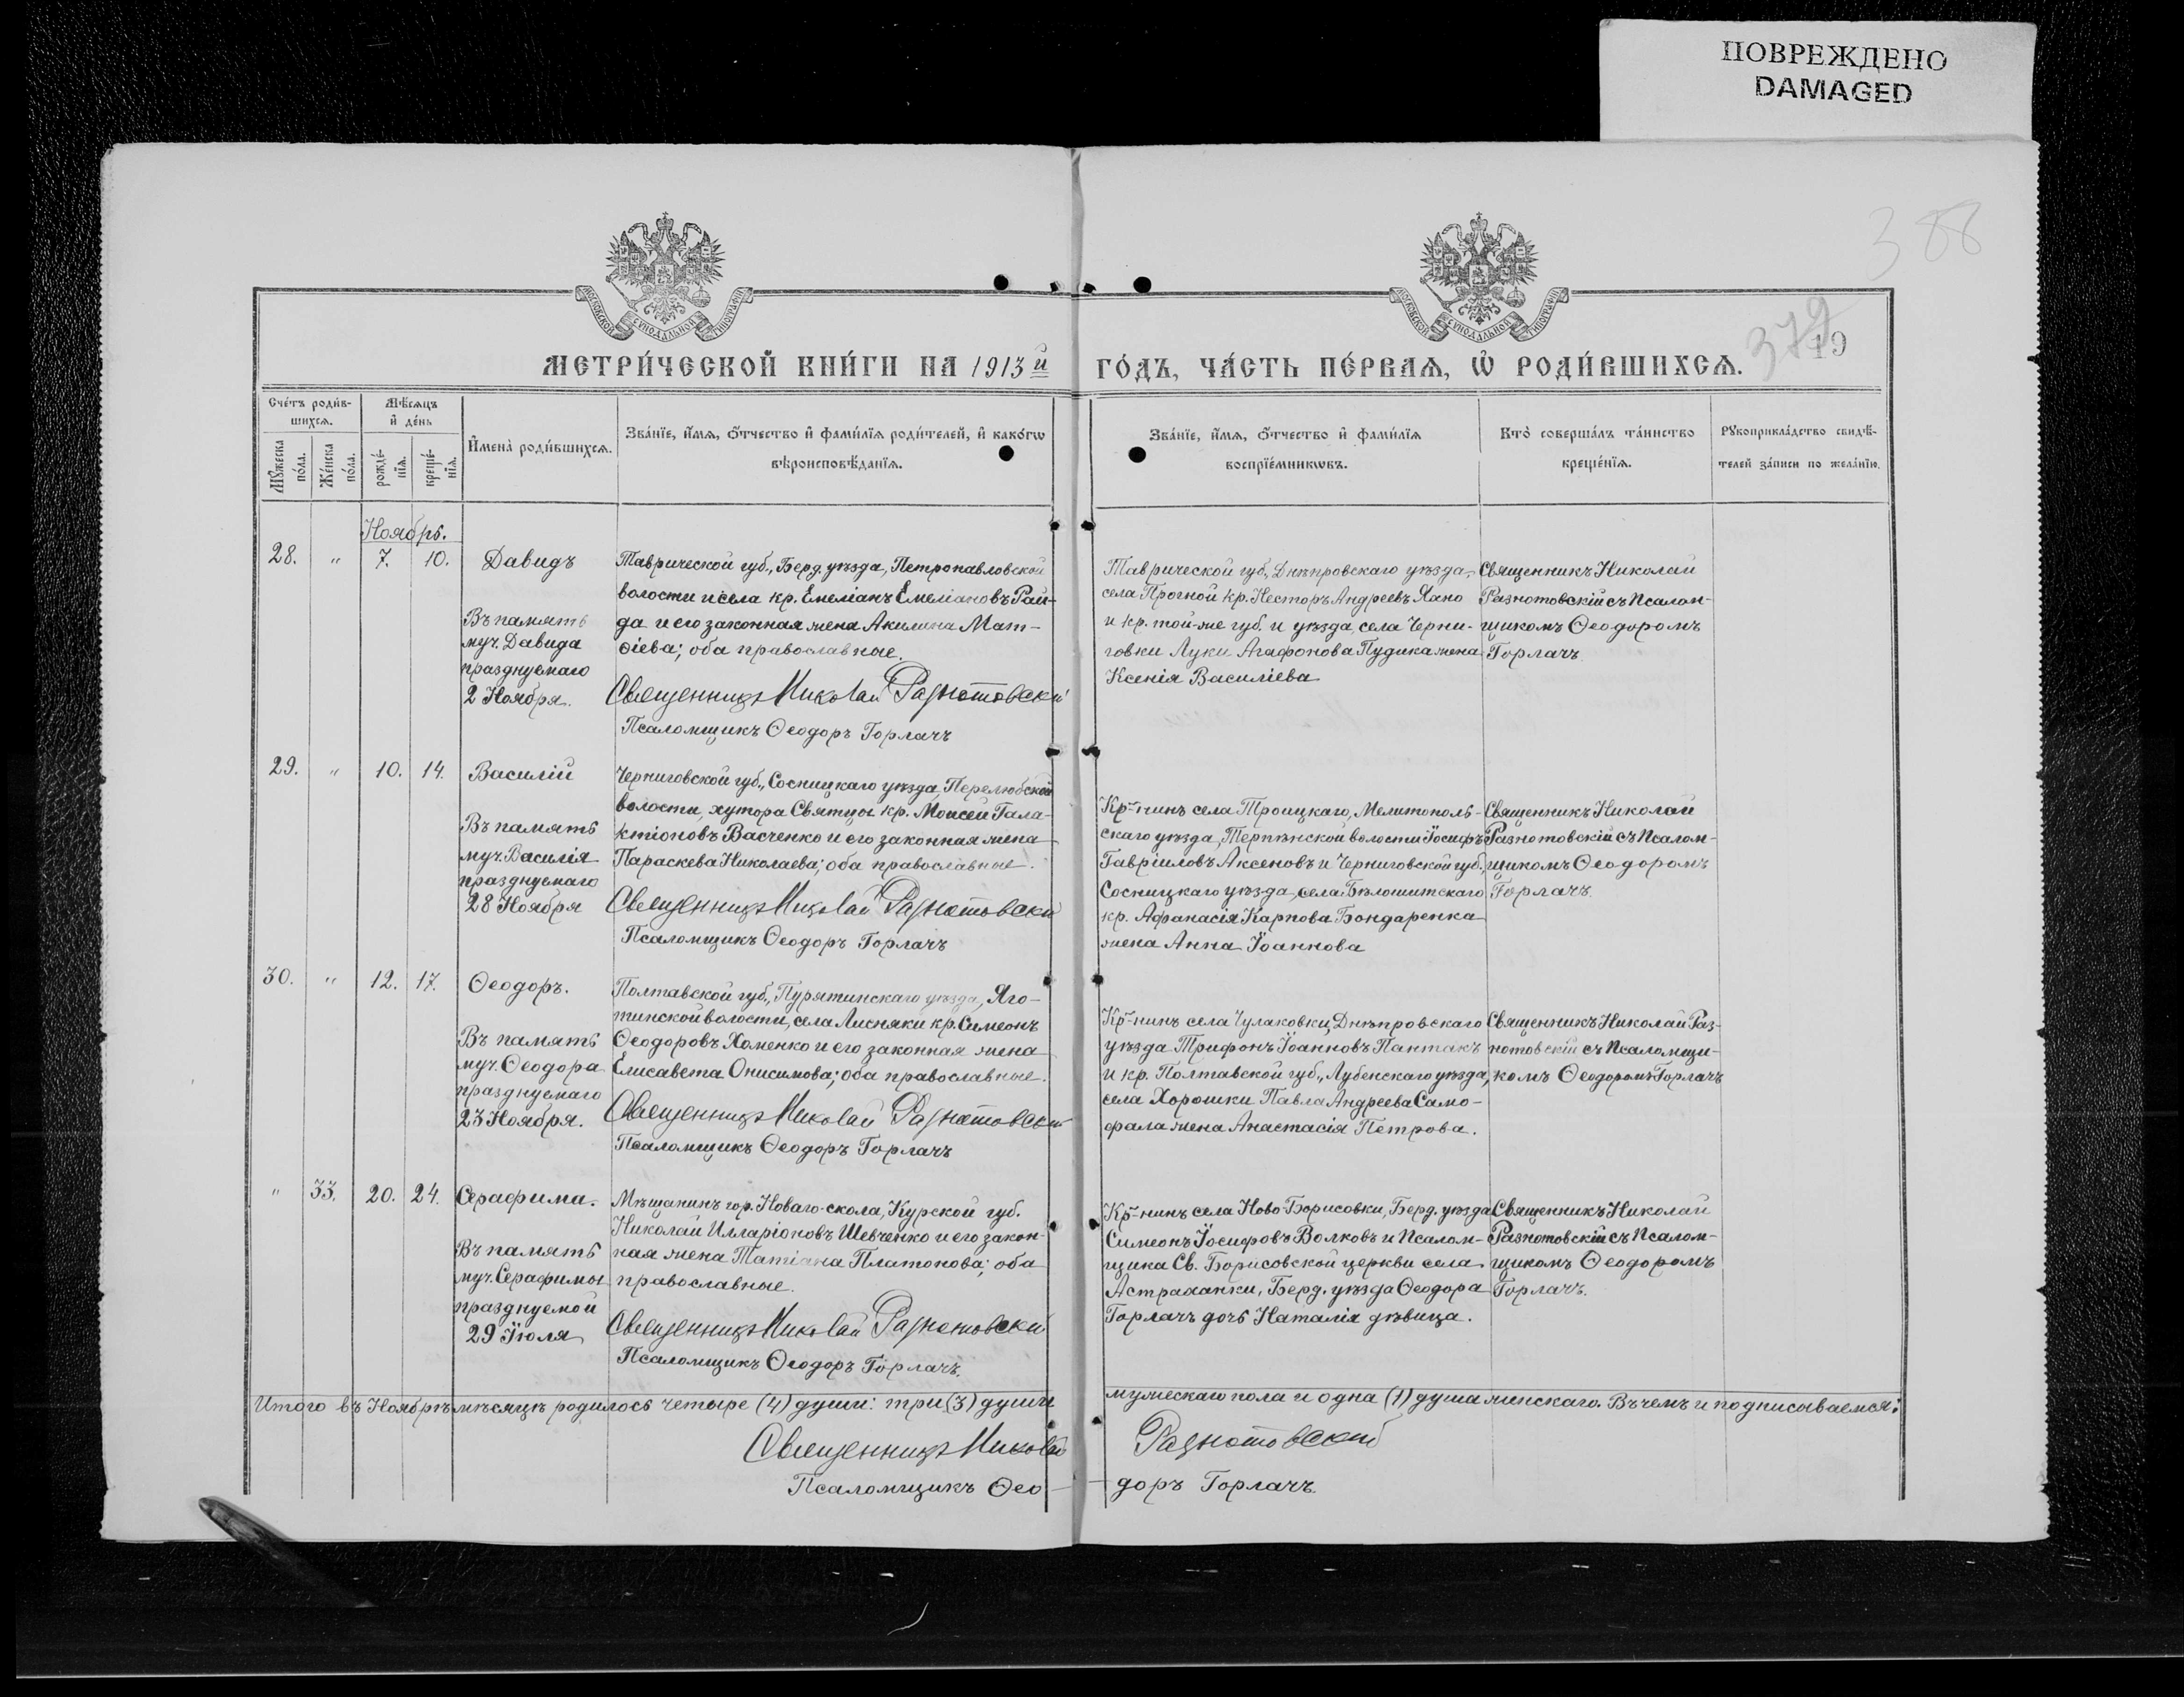 ПОВРЕЖДЕНО
DAMAGED
388
379
19
МОСКОВСКОЙ СУНОДАЛЬНОЙ ТИПОГРАФІИ
МОСКОВСКОЙ СУНОДАЛЬНОЙ ТИПОГРАФІИ
МЕТРИ́ЧЕСКОЙ КНИ́ГИ НА 1913й
ГО́ДЪ, ЧА́СТЬ ПЕ́РВАѦ, Ѡ҆ РОДИ́ВШИХСѦ.
Сче́тъ роди́в-
шихсѧ.
Мꙋ́жеска
по́ла.
Же́нска
по́ла.
Мѣ́сѧцъ
и҆ де́нь
рожде́-
нїѧ.
креще́-
нїѧ.
И҆мена̀ роди́вшихсѧ.
Зва́нїе, и҆́мѧ, ѻ҆́тчество и҆ фами́лїѧ роди́телей, и҆ како́гѡ
вѣроисповѣ́данїѧ.
Зва́нїе, и҆́мѧ, ѻ҆́тчество и҆ фами́лїѧ
воспрїе́мникѡвъ.
Кто̀ соверша́лъ та́инство
креще́нїѧ.
Рꙋкоприкла́дство свидѣ́-
телей за́писи по жела́нїю.
Ноябрь.
28. " 7. 10. Давидъ
Въ память
муч. Давида
празднуемаго
2 Ноября.
Таврической губ., Берд. уѣзда, Петропавловской
волости и села кр. Емеліанъ Емеліановъ Рай-
да и его законная жена Акилина Мат-
ѳіева; оба православные.
Священникъ Николай Разнотовскій
Псаломщикъ Ѳеодоръ Горлачъ
Таврической губ., Днѣпровскаго уѣзда,
села Прогной кр. Несторъ Андреевъ Хано
и кр. той-же губ. и уѣзда, села Черни-
говки Луки Агафонова Пудика жена
Ксенія Василіева
Священникъ Николай
Разнотовскій съ Псалом-
щикомъ Ѳеодоромъ
Горлачъ
29. " 10. 14. Василій
Въ память
муч. Василія
празднуемаго
28 Ноября
Черниговской губ., Сосницкаго уѣзда, Перелюбской
волости, хутора Святцы кр. Моисей Гала-
ктіоновъ Васченко и его законная жена
Параскева Николаева; оба православные.
Священникъ Николай Разнотовскій
Псаломщикъ Ѳеодоръ Горлачъ
Кр-нинъ села Троицкаго, Мелитополь-
скаго уѣзда, Терпѣнской волости Іосифъ
Гавріиловъ Аксеновъ и Черниговской губ.,
Сосницкаго уѣзда, села Бѣлошитскаго
кр. Афанасія Карпова Бондаренка
жена Анна Іоаннова
Священникъ Николай
Разнотовскій съ Псалом-
щикомъ Ѳеодоромъ
Горлачъ
30. " 12. 17. Ѳеодоръ.
Въ память
муч. Ѳеодора
празднуемаго
23 Ноября.
Полтавской губ., Пурятинскаго уѣзда, Яго-
тинской волости, села Лисняки кр. Симеонъ
Ѳеодоровъ Хоменко и его законная жена
Елисавета Онисимова; оба православные.
Священникъ Николай Разнотовскій
Псаломщикъ Ѳеодоръ Горлачъ
Кр-нинъ села Чулаковки, Днѣпровскаго
уѣзда Трифонъ Іоанновъ Пантакъ
и кр. Полтавской губ., Лубенскаго уѣзда,
села Хорошки Павла Андреева Само-
фала жена Анастасія Петрова.
Священникъ Николай Раз-
нотовскій съ Псаломщи-
комъ Ѳеодоромъ Горлачъ
" 33. 20. 24. Серафима.
Въ память
муч. Серафимы
празднуемой
29 Іюля
Мѣщанинъ гор. Новаго-скола, Курской губ.
Николай Илларіоновъ Шевченко и его закон-
ная жена Татіана Платонова; оба
православные.
Священникъ Николай Разнотовскій
Псаломщикъ Ѳеодоръ Горлачъ.
Кр-нинъ села Ново-Борисовки, Берд. уѣзда
Симеонъ Іосифовъ Волковъ и Псалом-
щика Св. Борисовской церкви села
Астраханки, Берд. уѣзда Ѳеодора
Горлачъ дочь Наталія дѣвица.
Священникъ Николай
Разнотовскій съ Псалом-
щикомъ Ѳеодоромъ
Горлачъ.
Итого въ Ноябрѣ мѣсяцѣ родилось четыре (4) души: три (3) души
мужескаго пола и одна (1) душа женскаго. Въ чемъ и подписываемся:
Священникъ Николай
Разнотовскій
Псаломщикъ Ѳео-
доръ Горлачъ.